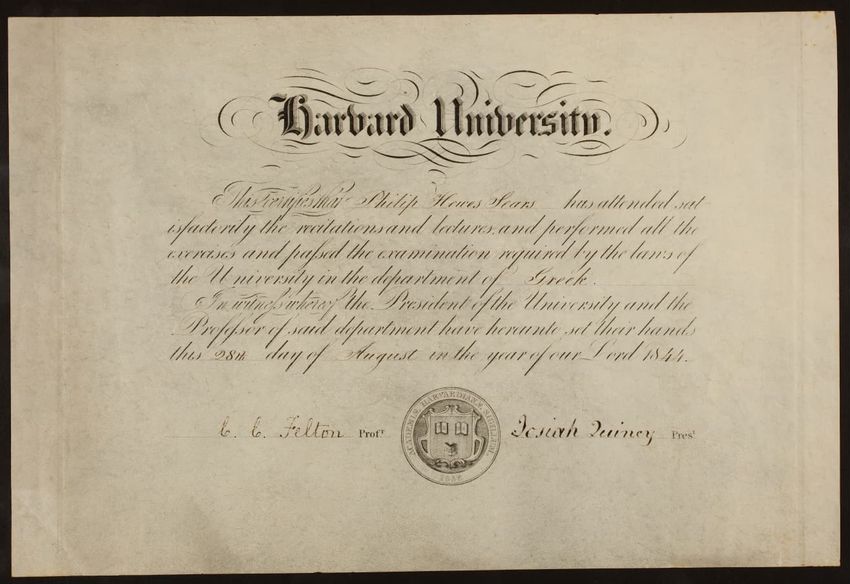 Harvard University.
This certifies that Philip Howes Sears has attended sat
isfactorily the recitations and lectures, and performed all the
exercises and passed the examination required by the laws of
the University in the department of Greek.
In witness whereof the President of the University and the
Professor of said department have hereunto set their hands
this 28th day of August in the year of our Lord 1844.
C. C. Felton Profr
ACADEMIÆ HARVARDIANÆ SIGILLUM
Josiah Quincy Prest